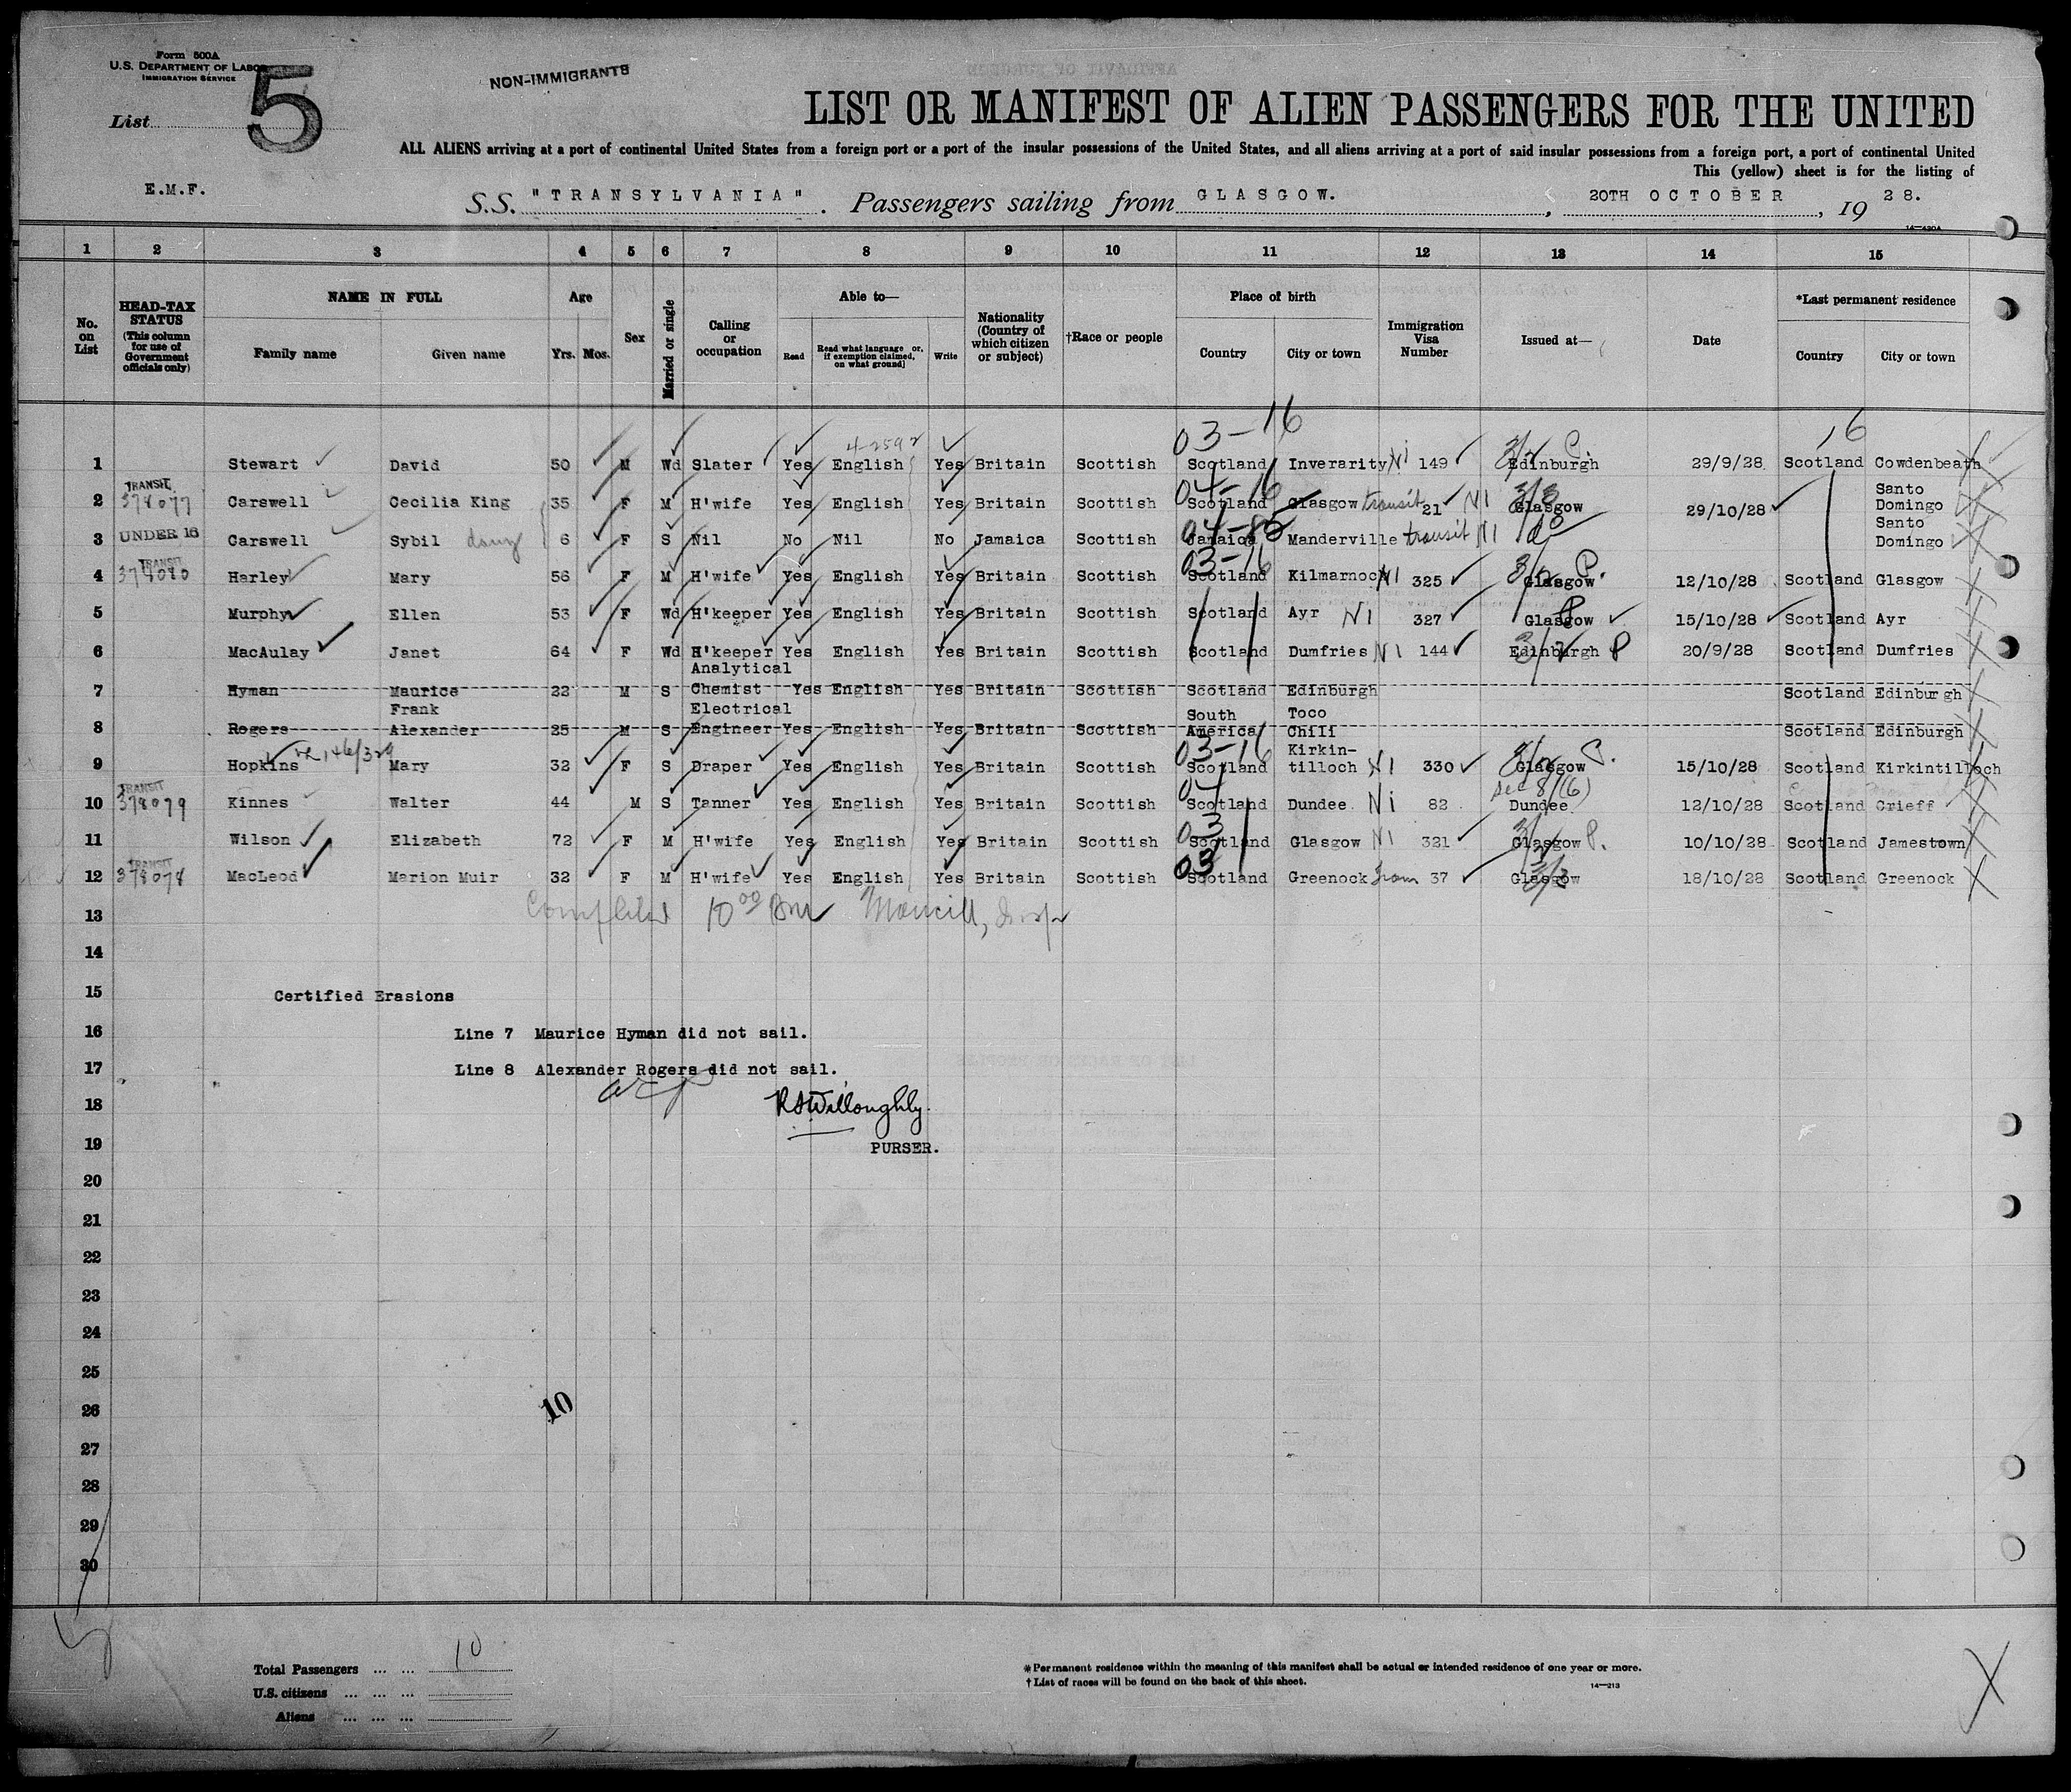 Form 500A
U.S. DEPARTMENT OF LABOR
IMMIGRATION SERVICE
NON-IMMIGRANTS
List 5
LIST OR MANIFEST OF ALIEN PASSENGERS FOR THE UNITED
ALL ALIENS arriving at a port of continental United States from a foreign port or a port of the insular possessions of the United States, and all aliens arriving at a port of said insular possessions from a foreign port, a port of continental United
This (yellow) sheet is for the listing of
E.M.F.
S.S. "TRANSYLVANIA". Passengers sailing from GLASGOW. , 20TH OCTOBER , 19 28.
14—430A
1 2 3 4 5 6 7 8 9 10 11 12 13 14 15
No. on List
HEAD-TAX STATUS (This column for use of Government officials only)
NAME IN FULL
Family name Given name
Age
Yrs. Mos.
Sex
Married or single
Calling or occupation
Able to—
Read
Read what language or, if exemption claimed, on what ground]
Write
Nationality (Country of which citizen or subject)
†Race or people
Place of birth
Country City or town
Immigration Visa Number
Issued at—
Date
*Last permanent residence
Country City or town
03-16
16
4-2592
1 Stewart David 50 M Wd Slater Yes English Yes Britain Scottish Scotland Inverarity NI 149 3/2 Edinburgh 29/9/28 Scotland Cowdenbeath
TRANSIT 04-16
2 378077 Carswell Cecilia King 35 F M H'wife Yes English Yes Britain Scottish Scotland Glasgow transit 21 NI 3/3 Glasgow 29/10/28 Santo Domingo
04-85
3 UNDER 16 Carswell Sybil 6 F S Nil No Nil No Jamaica Scottish Jamaica Manderville transit NI do Santo Domingo
TRANSIT 03-16
4 378080 Harley Mary 56 F M H'wife Yes English Yes Britain Scottish Scotland Kilmarnock NI 325 3/2 Glasgow P. 12/10/28 Scotland Glasgow
5 Murphy Ellen 53 F Wd H'keeper Yes English Yes Britain Scottish Scotland Ayr NI 327 Glasgow P 15/10/28 Scotland Ayr
6 MacAulay Janet 64 F Wd H'keeper Yes English Yes Britain Scottish Scotland Dumfries NI 144 3/2 Edinburgh P 20/9/28 Scotland Dumfries
7 Hyman Maurice 22 M S Analytical Chemist Yes English Yes Britain Scottish Scotland Edinburgh Scotland Edinburgh
8 Rogers Frank Alexander 25 M S Electrical Engineer Yes English Yes Britain Scottish South America Toco Chili Scotland Edinburgh
03-16
9 Hopkins Mary 32 F S Draper Yes English Yes Britain Scottish Scotland Kirkin-tilloch NI 330 3/2 Glasgow P. 15/10/28 Scotland Kirkintilloch
TRANSIT 04 Sec 8/(6)
10 378079 Kinnes Walter 44 M S Tanner Yes English Yes Britain Scottish Scotland Dundee NI 82 Dundee 12/10/28 Scotland Crieff
03
11 Wilson Elizabeth 72 F M H'wife Yes English Yes Britain Scottish Scotland Glasgow NI 321 3/2 Glasgow P. 10/10/28 Scotland Jamestown
TRANSIT 03
12 378078 MacLeod Marion Muir 32 F M H'wife Yes English Yes Britain Scottish Scotland Greenock Tran 37 3/3 Glasgow 18/10/28 Scotland Greenock
13 Completed 10 00 am
14
15 Certified Erasions
16 Line 7 Maurice Hyman did not sail.
17 Line 8 Alexander Rogers did not sail.
18 R S Willoughby.
19 PURSER.
20
21
22
23
24
25
26 10
27
28
29
30
Total Passengers ... ... 10
U.S. citizens ... ... ...
Aliens ... ... ...
*Permanent residence within the meaning of this manifest shall be actual or intended residence of one year or more.
†List of races will be found on the back of this sheet.
14—213